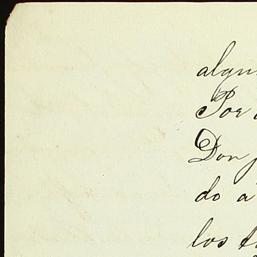 algun
Por
Don
do a
los